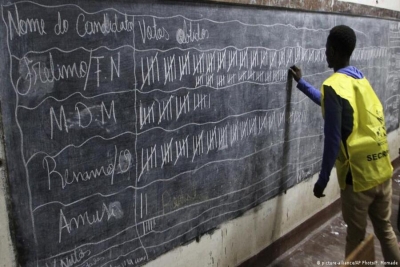 Nome do Candidato Votos obtidos
Frelimo/F.N
M.D.M
Renamo/
Amusi
Votos
SEC
picture-alliance/AP Photo/F. Momade